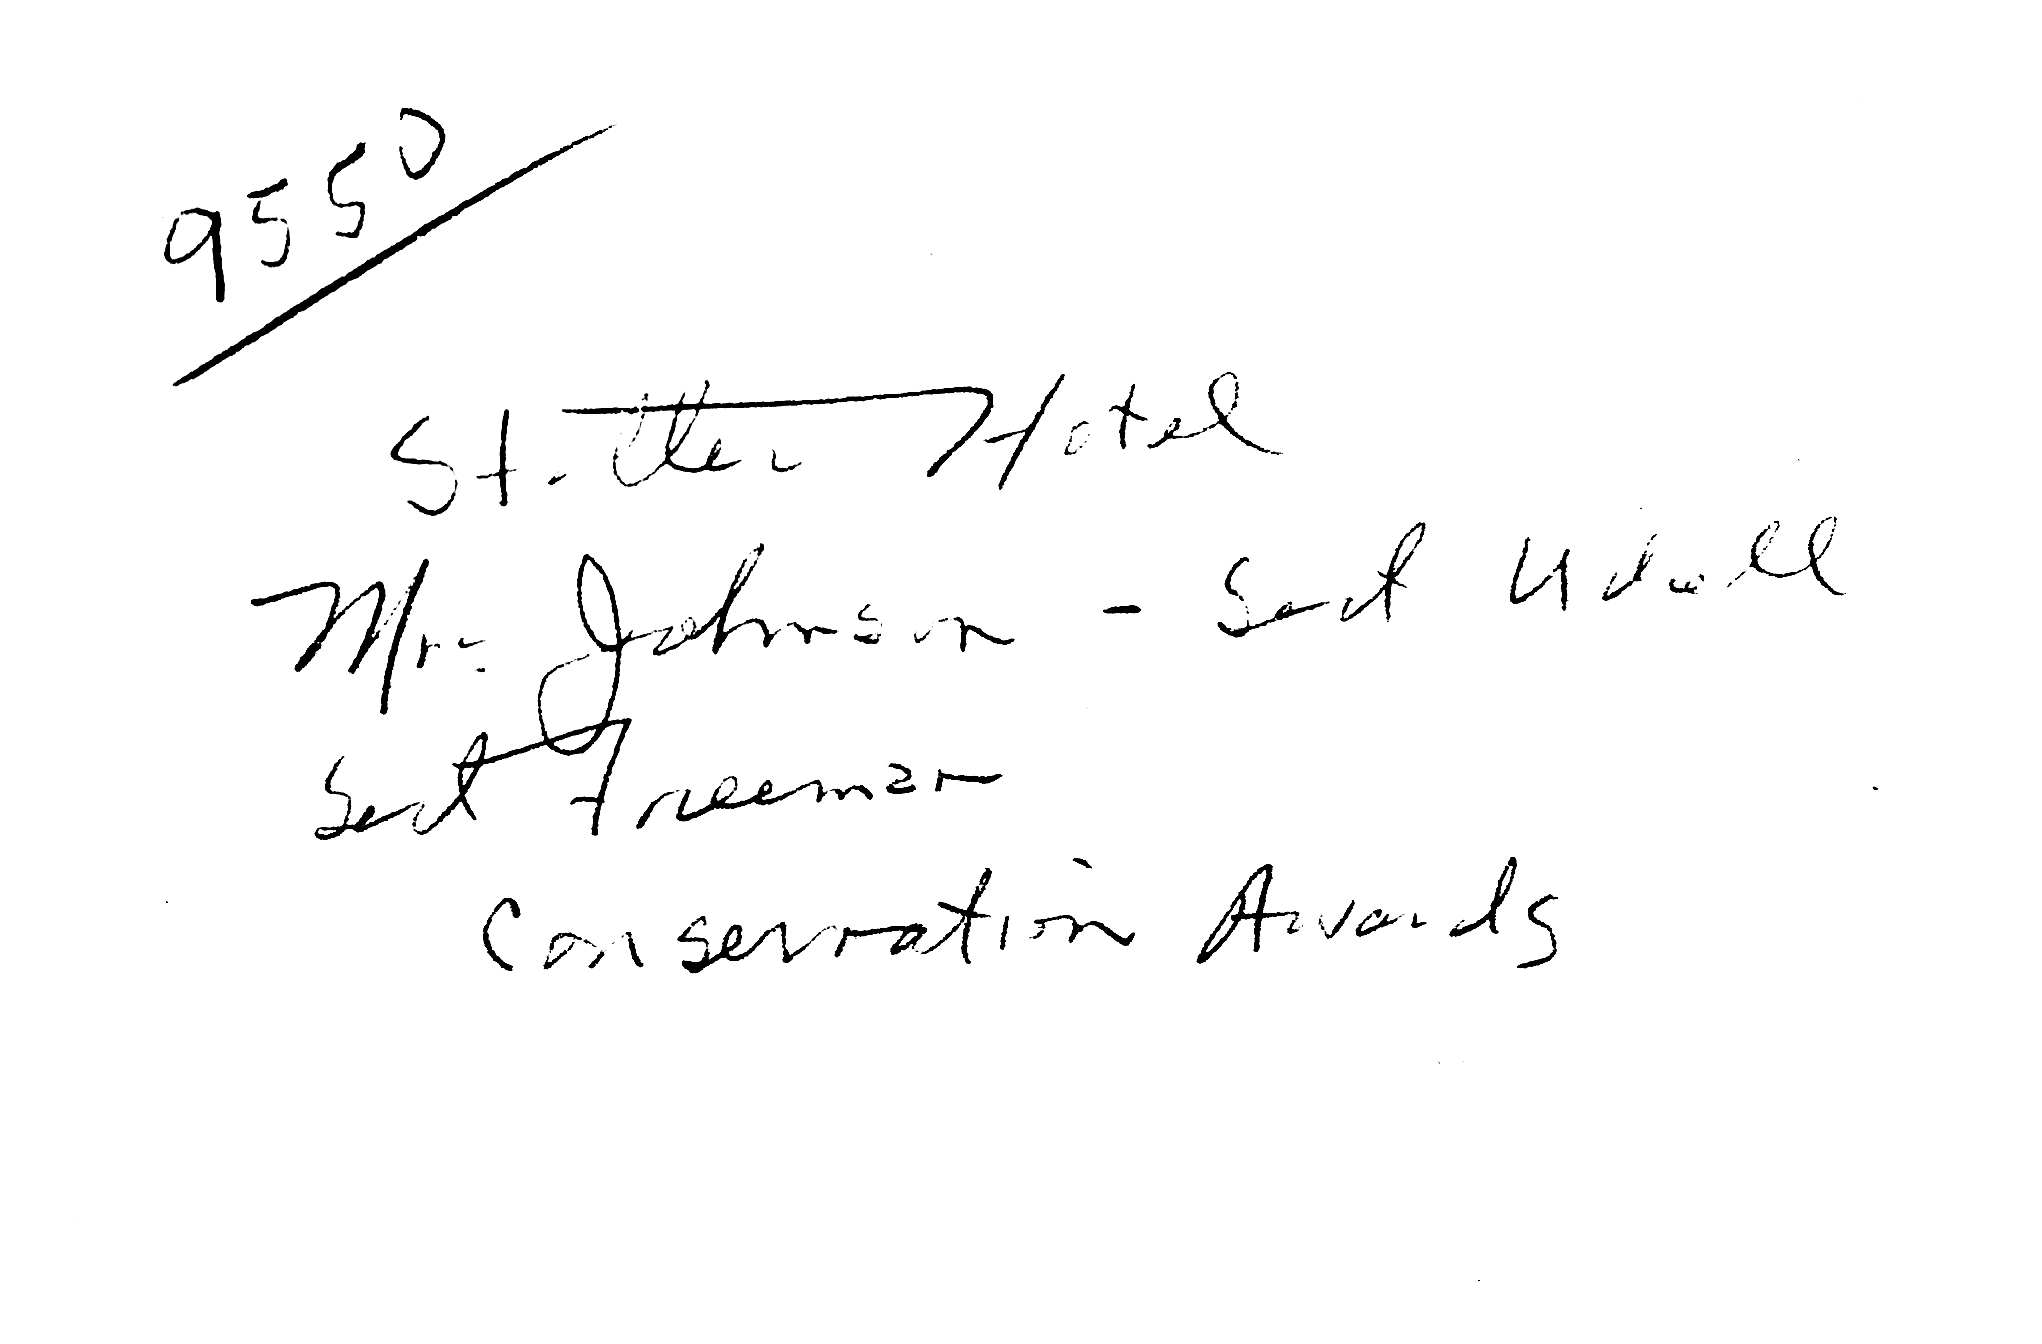 9550
Statler Hotel
Mrs Johnson - Sect Udall
Sect Freeman
Conservation Awards